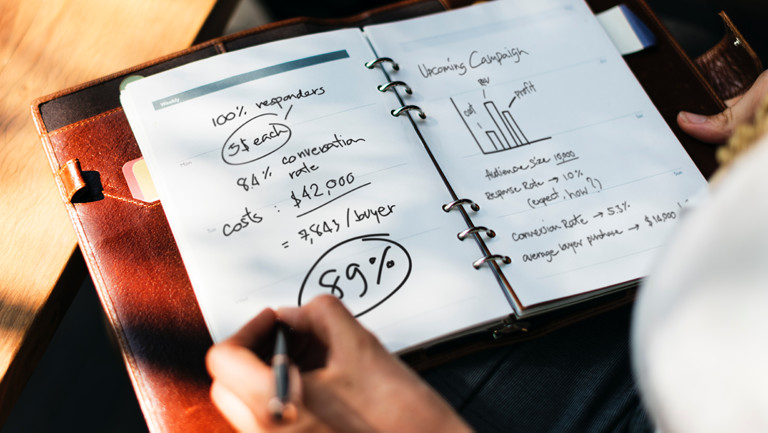 Weekly
100% responders
5$ each
84% conversation
rate
costs : $42,000
= 7,843 / buyer
89%
Upcoming Campaign
cost
rev
profit
Audience size 10,000
Response Rate → 10%
(expect, how?)
Conversion Rate → 5.3%
average buyer purchase → $10,000